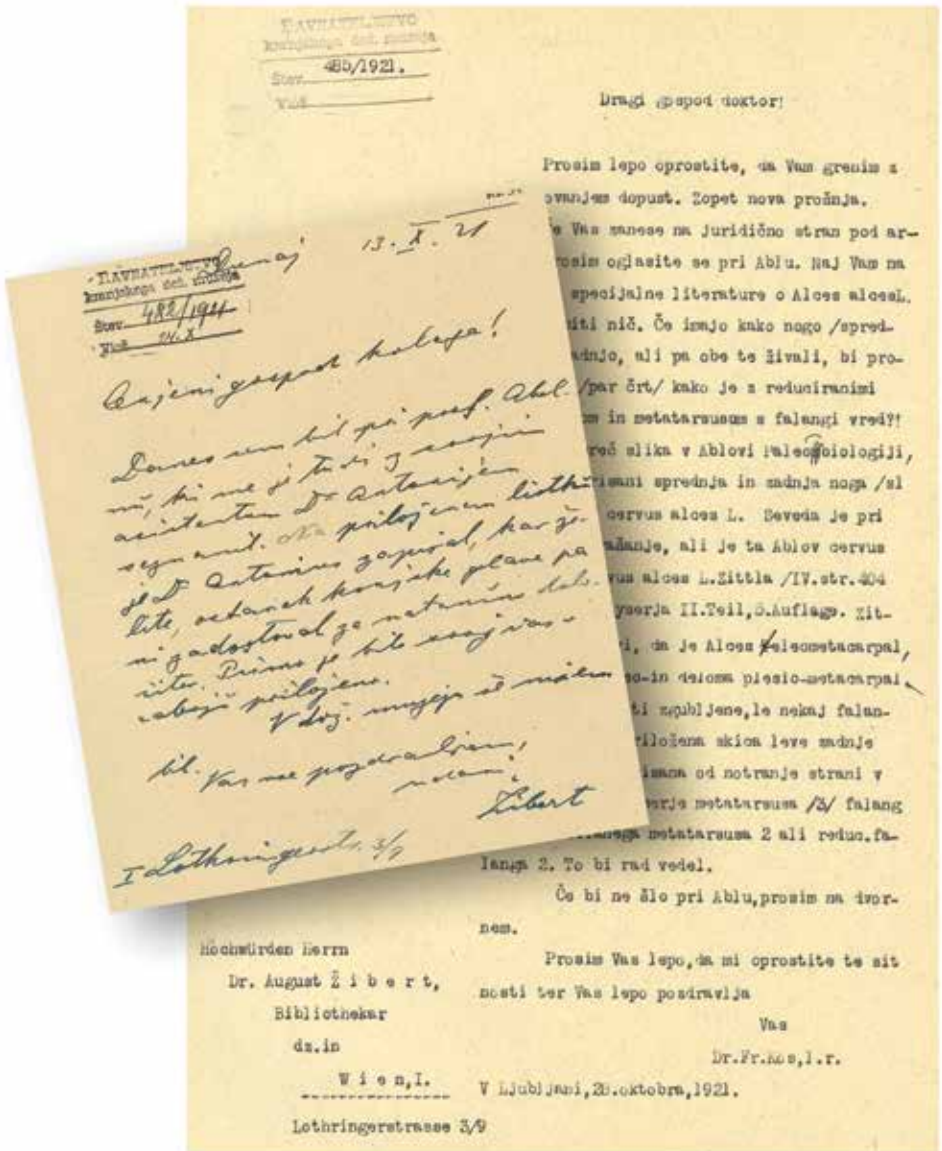 RAVNATELJSTVO
kranjskega dež. muzeja
Štev. 485/1921.
Vlož.
Dragi gospod doktor!
Prosim lepo oprostite, da Vam grenim z
ovanjem dopust. Zopet nova prošnja.
Vas zanese na juridično stran pod ar-
rosim oglasite se pri Ablu. Naj Vam na
specijalne literature o Alces alcesL.
iti nič. Če imajo kako nogo /spred-
adnjo, ali pa obe te živali, bi pro-
/par črt/ kako je z reduciranimi
in metatarsusom s falangi vred?!
reč slika v Ablovi Paleobiologiji,
risani sprednja in zadnja noga /sl
cervus alces L. Seveda je pri
ašanje, ali je ta Ablov cervus
vus alces L.Zittla /IV.str.404
II.Teil,
Auflage. Zit-
i, da je Alces teleometacarpal,
in deloma plesio-metacarpal,
ti zgubljene,le nekaj falan-
riložena skica leve zadnje
isana od notranje strani v
serje metatarsusa /3/ falang
metatarsusa 2 ali reduc.fa-
langa 2. To bi rad vedel.
Če bi ne šlo pri Ablu,prosim na dvor-
nem.
Prosim Vas lepo,da mi oprostite te sit
nosti ter Vas lepo pozdravlja
Vas
Dr.Fr.Kos,l.r.
V Ljubljani,28.oktobra,1921.
Hochwürden Herrn
Dr. August Ž i b e r t,
Bibliothekar
dz.in
W i e n,I.
Lothringerstrasse 3/9
RAVNATELJSTVO
kranjskega dež. muzeja
Štev. 482/1921
Vlož. 24.X
Dunaj 13. X. 21
Cenjeni gospod kolega!
Danes sem bil pri prof. Abel-
nu, ki me je tudi z svojim
asistentom Dr Antonijem
seznanil. Na priloženem listku
je Dr Antonius zapisal, kar že-
lite, ostanek
ni zadostoval za natančno dolo-
čitev. Pismo je bilo
priloženo.
V dvor. muzeju še nisem
bil.
Vas
pozdravljam,
Žibert
I Lothringerstr. 3/9